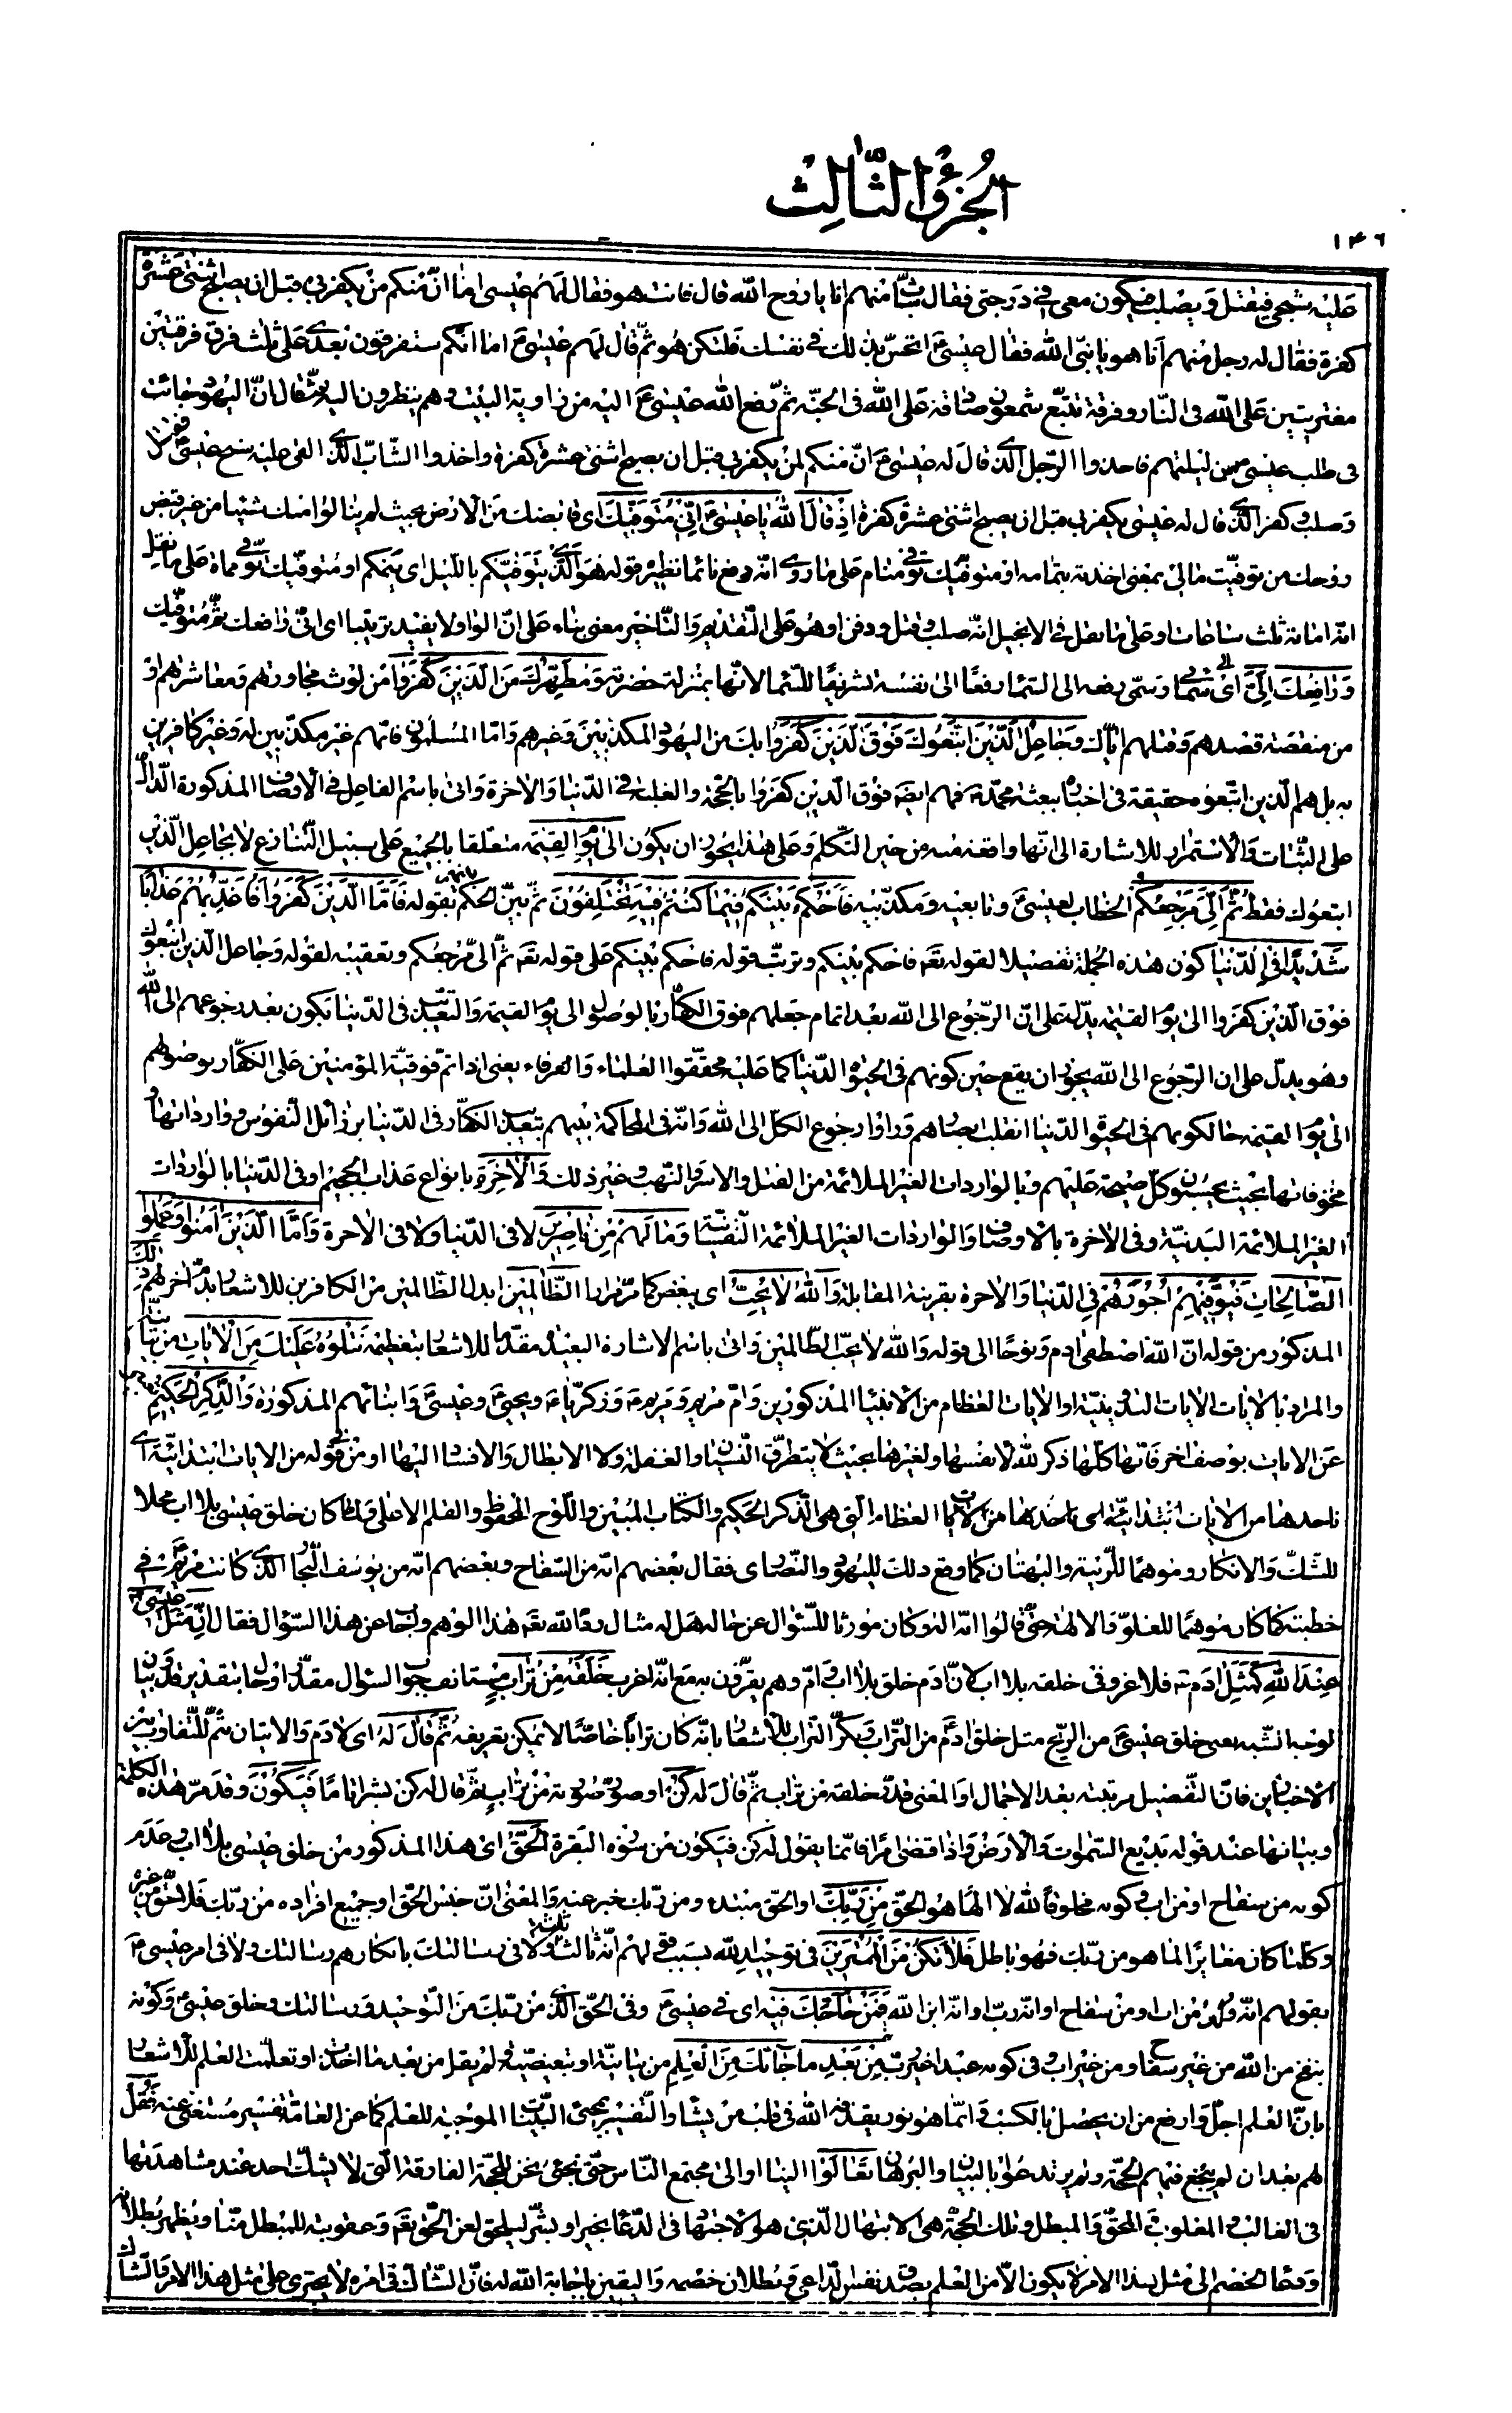 الجزؤ الثّالث
۱۴۶
عليه شبحى فيقتل و يصلب فيكون معى فى درجتى فقال شابّ منهم انا يا روح الله قال فانت هو فقال لهم عيسى اما انّ منكم من يكفر بى قبل ان يصبح اثنتى عشرة
كفرة فقال له رجل منهم انا هو يا نبىّ الله فقال عيسىؑ اتحسّ بذلك فى نفسك فلتكن هو ثمّ قال لهم عيسىؑ اما انّكم ستفرقون بعدى على ثلث فرق فرقتين
مفتريتين على الله فى النّار و فرقة تتبّع شمعون صادقة على الله فى الجنّة ثمّ رفع الله عيسىؑ اليه من زاوية البيت و هم ينظرون اليه ثمّ قال انّ اليهود جائت
فى طلب عيسى من ليلتهم فاخذوا الرّجل الّذى قال له عيسىؑ انّ منكم لمن يكفر بى قبل ان يصبح اثنتى عشرة كفرة و اخذوا الشّابّ الّذى القى عليه شبح عيسىؑ فقتل
و صلب و كفر الّذى قال له عيسى يكفر بى قبل ان يصبح اثنتى عشرة كفرة اذ قال الله يا عيسىؑ انّى متوفّيك اى قابضك من الارض بحيث لم ينالوا منك شيئا من غير قبض
روحك من توفّيت مالى بمعنى اخذته بتمامه او متوفّيك توفّى منام على ما روى انّه رفع نائما نظير قوله هو الّذى يتوفّيكم باللّيل اى ينيمكم او متوفّيك توفّى مماة على ما نقل
انّه اماته ثلث ساعات و على ما نقل فى الانجيل انّه صلب و قتل و دفن او هو على التّقديم و التّأخير معنى بناء على انّ الواو لا يفيد ترتيبا اى انّى رافعك ثمّ متوفّيك
و رافعك الىّ اى الى سمائى و سمّى رفعه الى السّماء رفعًا الى نفسه تشريفًا للسّماء لانّها بمنزلة حضرته و مطهّرك من الّذين كفروا من لوث مجاورتهم و معاشرتهم او
من منقصة قصدهم و قتلهم ايّاك و جاعل الّذين اتّبعوك فوق الّذين كفروا بك من اليهود المكذّبين و غيرهم و امّا المسلمون فانّهم غير مكذّبين له و غير كافرين
به بل هم الّذين اتّبعوه حقيقة فى اخباره ببعثة محمّدؐ فهم ايضا فوق الّذين كفروا بالحجّة و الغلبة فى الدّنيا و الاخرة و اتى باسم الفاعل فى الاوصاف المذكورة الدّالّ
على الثّبات و الاستمرار للاشارة الى انّها واقعة منه من حين التّكلّم و على هذا يجوز ان يكون الى يوم القيمة متعلّقا بالجميع على سبيل التّنازع لا بجاعل الّذين
اتبعوك فقط ثمّ الىّ مرجعكم الخطاب لعيسىؑ و تابعيه و مكذّبيه فاحكم بينكم فيما كنتم فيه تختلفون ثمّ بيّن الحكم بينهم بقوله فامّا الّذين كفروا فاعذّبهم عذابًا
شديدًا فى الدّنيا كون هذه الجملة تفصيلا لقوله تعم فاحكم بينكم و ترتّب قوله فاحكم بينكم على قوله تعم ثمّ الىّ مرجعكم و تعقيبه لقوله و جاعل الّذين اتّبعوك
فوق الّذين كفروا الى يوم القيمة يدلّ على انّ الرّجوع الى الله بعد اتمام جعلهم فوق الكفّار بالوصول الى يوم القيمة و التّعذيب فى الدّنيا يكون بعد رجوعهم الى الله
و هو يدلّ على ان الرّجوع الى الله يجوز ان يقع حين كونهم فى الحيوة الدّنيا كما عليه محقّقوا العلماء و العرفاء يعنى اذا تمّ فوقيّة المؤمنين على الكفّار بوصولهم
الى يوم القيمة حالكونهم فى الحيوة الدّنيا انقلب بصارهم و رأوا رجوع الكلّ الى الله و انّه فى المحاكمة بينهم بتعذيب الكفّار فى الدّنيا برذائل النّفوس و وارداتها و
مخوفاتها بحيث يحسبون كلّ صيحة عليهم و بالواردات الغير الملائمة من القتل و الاسر و النّهب و غير ذلك و الاخرة بانواع عذاب الجحيم او فى الدّنيا بالواردات
الغير الملائمة البدنيّة و فى الاخرة بالاوصاف و الواردات الغير الملائمة النّفسانيّة و ما لهم من ناصرين لا فى الدّنيا و لا فى الاخرة و امّا الّذين امنوا و عملوا
الصّالحات فيوفّيهم اجورهم فى الدّنيا و الاخرة بقرينة المقابلة و الله لا يحبّ اى يبغض كما مرّ مرارا الظّالمين ابدل الظّالمين من الكافرين للاشعار بذمّ اخر لهم ذلك
المذكور من قوله انّ الله اصطفى ادم و نوحًا الى قوله و الله لا يحبّ الظّالمين و اتى باسم الاشارة البعيدة مقدّما للاشعار بتعظيمه نتلوه عليك من الايات من بيانيّة
و المراد بالايات الايات التّدوينيّة او الايات العظام من الانبياء المذكورين و امّ مريم و مريمؑ و زكريّاؑ و يحيىؑ و عيسىؑ و ابنائهم المذكورة و الذّكر الحكيم
عن الايات بوصف اخر فانّها كلّها ذكر لله لانفسها و لغيرها بحيث لا يتطرّق النّسيان و الغفلة و لا الابطال و الافساد اليها او من فى قوله من الايات ابتدائيّة اى
ناخذها من الايات ابتدائيّة اى ناخذها من الايات العظام الّتى هى الذّكر الحكيم و الكتاب المبين و اللّوح المحفوظ و القلم الاعلى و لمّا كان خلق عيسى بلا اب محلا
للشّكّ و الانكار و موهمًا للرّيبة و البهتان كما وقع ذلك لليهود و النّصارى فقال بعضهم انّه من السّفاح و بعضهم انّه من يوسف النّجّار الّذى كانت مريمؑ فى
خطبته كما كان موهمًا للغلوّ و الالهة حتّى قالوا انّه اله و كان مورثا للسّؤال عن حاله هل له مثال ردّ الله تعم هذا الوهم و اجاب عن هذا السّؤال فقال انّ مثل عيسى
عند الله كمثل ادم فلا غرو فى خلقه بلا اب لانّ ادم خلق بلا اب و امّ و هم يقرّون به مع انّه اغرب خلقه من تراب مستأنف جواب لسؤال مقدّر او حال بتقدير قد و بيان
لوجه الشّبه يعنى خلق عيسىؑ من الرّيح مثل خلق ادمؑ من التّراب و نكّر التّراب للاشعار بانّه كان ترابًا خاصًّا لا يمكن تعريفه ثمّ قال له اى لادم و الاتيان بثمّ للتّفاوت بين
الاخبارين فانّ التّفصيل مرتبته بعد الاجمال او المعنى قدّر خلقه من تراب ثمّ قال له كن او صوّر صورته من تراب ثمّ قال له كن بشرا تامّا فيكون و قد مرّ هذه الكلمة
و بيانها عند قوله بديع السّموات و الارض و اذا قضى امرًا فانّما يقول له كن فيكون من سورة البقرة الحقّ اى هذا المذكور من خلق عيسى بلا اب و عدم
كونه من سفاح او من اب و كونه مخلوقًا لله لا الهًا هو الحقّ من ربّك او الحقّ مبتدء و من ربّك خبر عنه و المعنى انّ جنس الحقّ او جميع افراده من ربّك فلا حقّ من غيره
و كلّما كان مغايرًا لما هو من ربّك فهو باطل فلا تكن من الممترين فى توحيد الله بسبب قولهم انّه ثالث ثلثة و لا فى رسالتك بانكارهم رسالتك و لا فى امر عيسىؑ
بقولهم انّه ولد من اب او من سفاح او انّه ربّ او انّه ابن الله فمن حاجّك فيه اى فى عيسىؑ و فى الحقّ الّذى من ربّك من التّوحيد و رسالتك و خلق عيسىؑ و كونه
بنفخ من الله من غير سفاح و من غير اب و فى كونه عبدا غير ربّ من بعد ما جائك من العلم من بيانيّة او تبعيضيّة و لم يقل من بعد ما اخذت او تعلّمت العلم للاشعار
بانّ العلم اجلّ و ارفع من ان يحصل بالكسب و انّما هو نور يقذفه الله فى قلب من يشاء و التّفسير بمجىء البيّنات الموجبة للعلم كما عن العامّة تفسير مستغنى عنه فقل
لهم بعد ان لم ينجع فيهم الحجّة و لم يرتدعوا بالبيان و البرهان تعالوا الينا او الى مجتمع النّاس حتّى نجىء نحن للحجّة الفارقة الّتى لا يشكّ احد عند مشاهدتها
فى الغالب و المغلوب فى المحقّ و المبطل و تلك الحجّة هى الابتهال الّذى هو الاجتهاد فى الدّعاء بخير او بشرّ ليلحق لعن الحقّ تعم و عقوبته للمبطل منّا و يظهر بطلانه
و دعاء الخصم الى مثل هذا الامر لا يكون الّا من العلم بصدق نفس الدّاعى و بطلان خصمه و اليقين باجابة الله له فانّ الشّاكّ فى امره لا يجترى على مثل هذا الامر فالشّاك